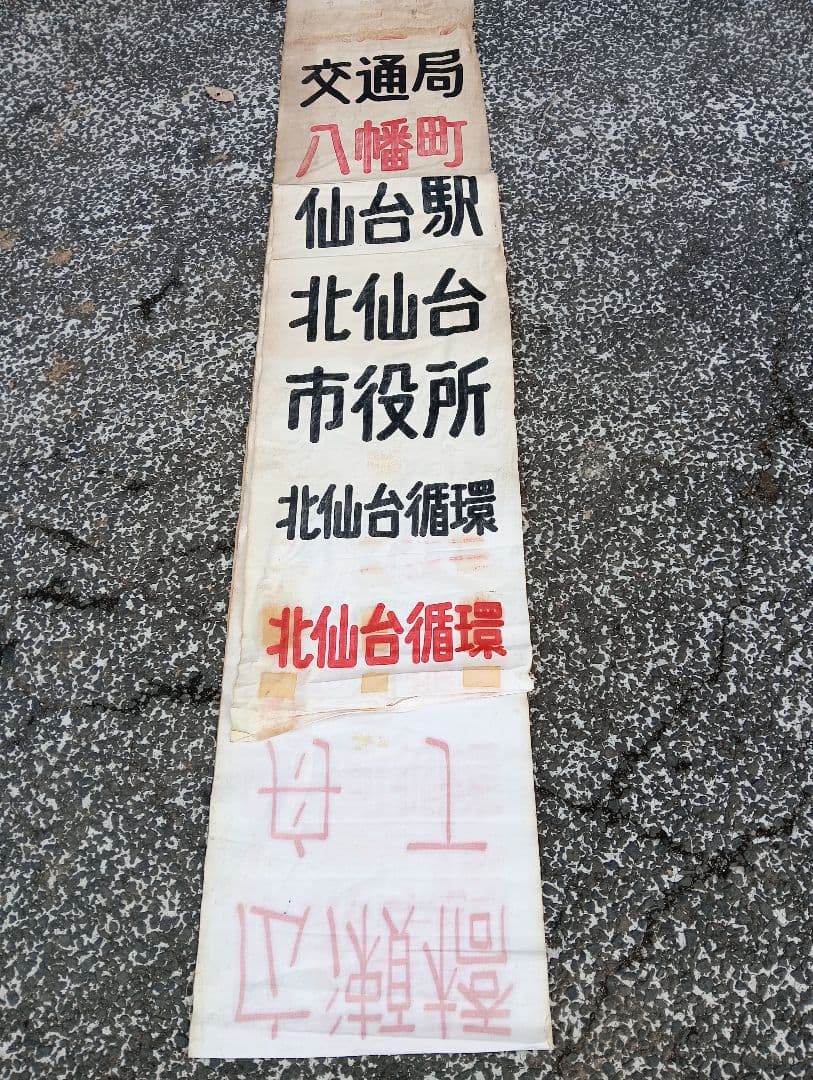 交通局
八幡町
仙台駅
北仙台
市役所
北仙台循環
北仙台循環
舟丁
広瀬橋